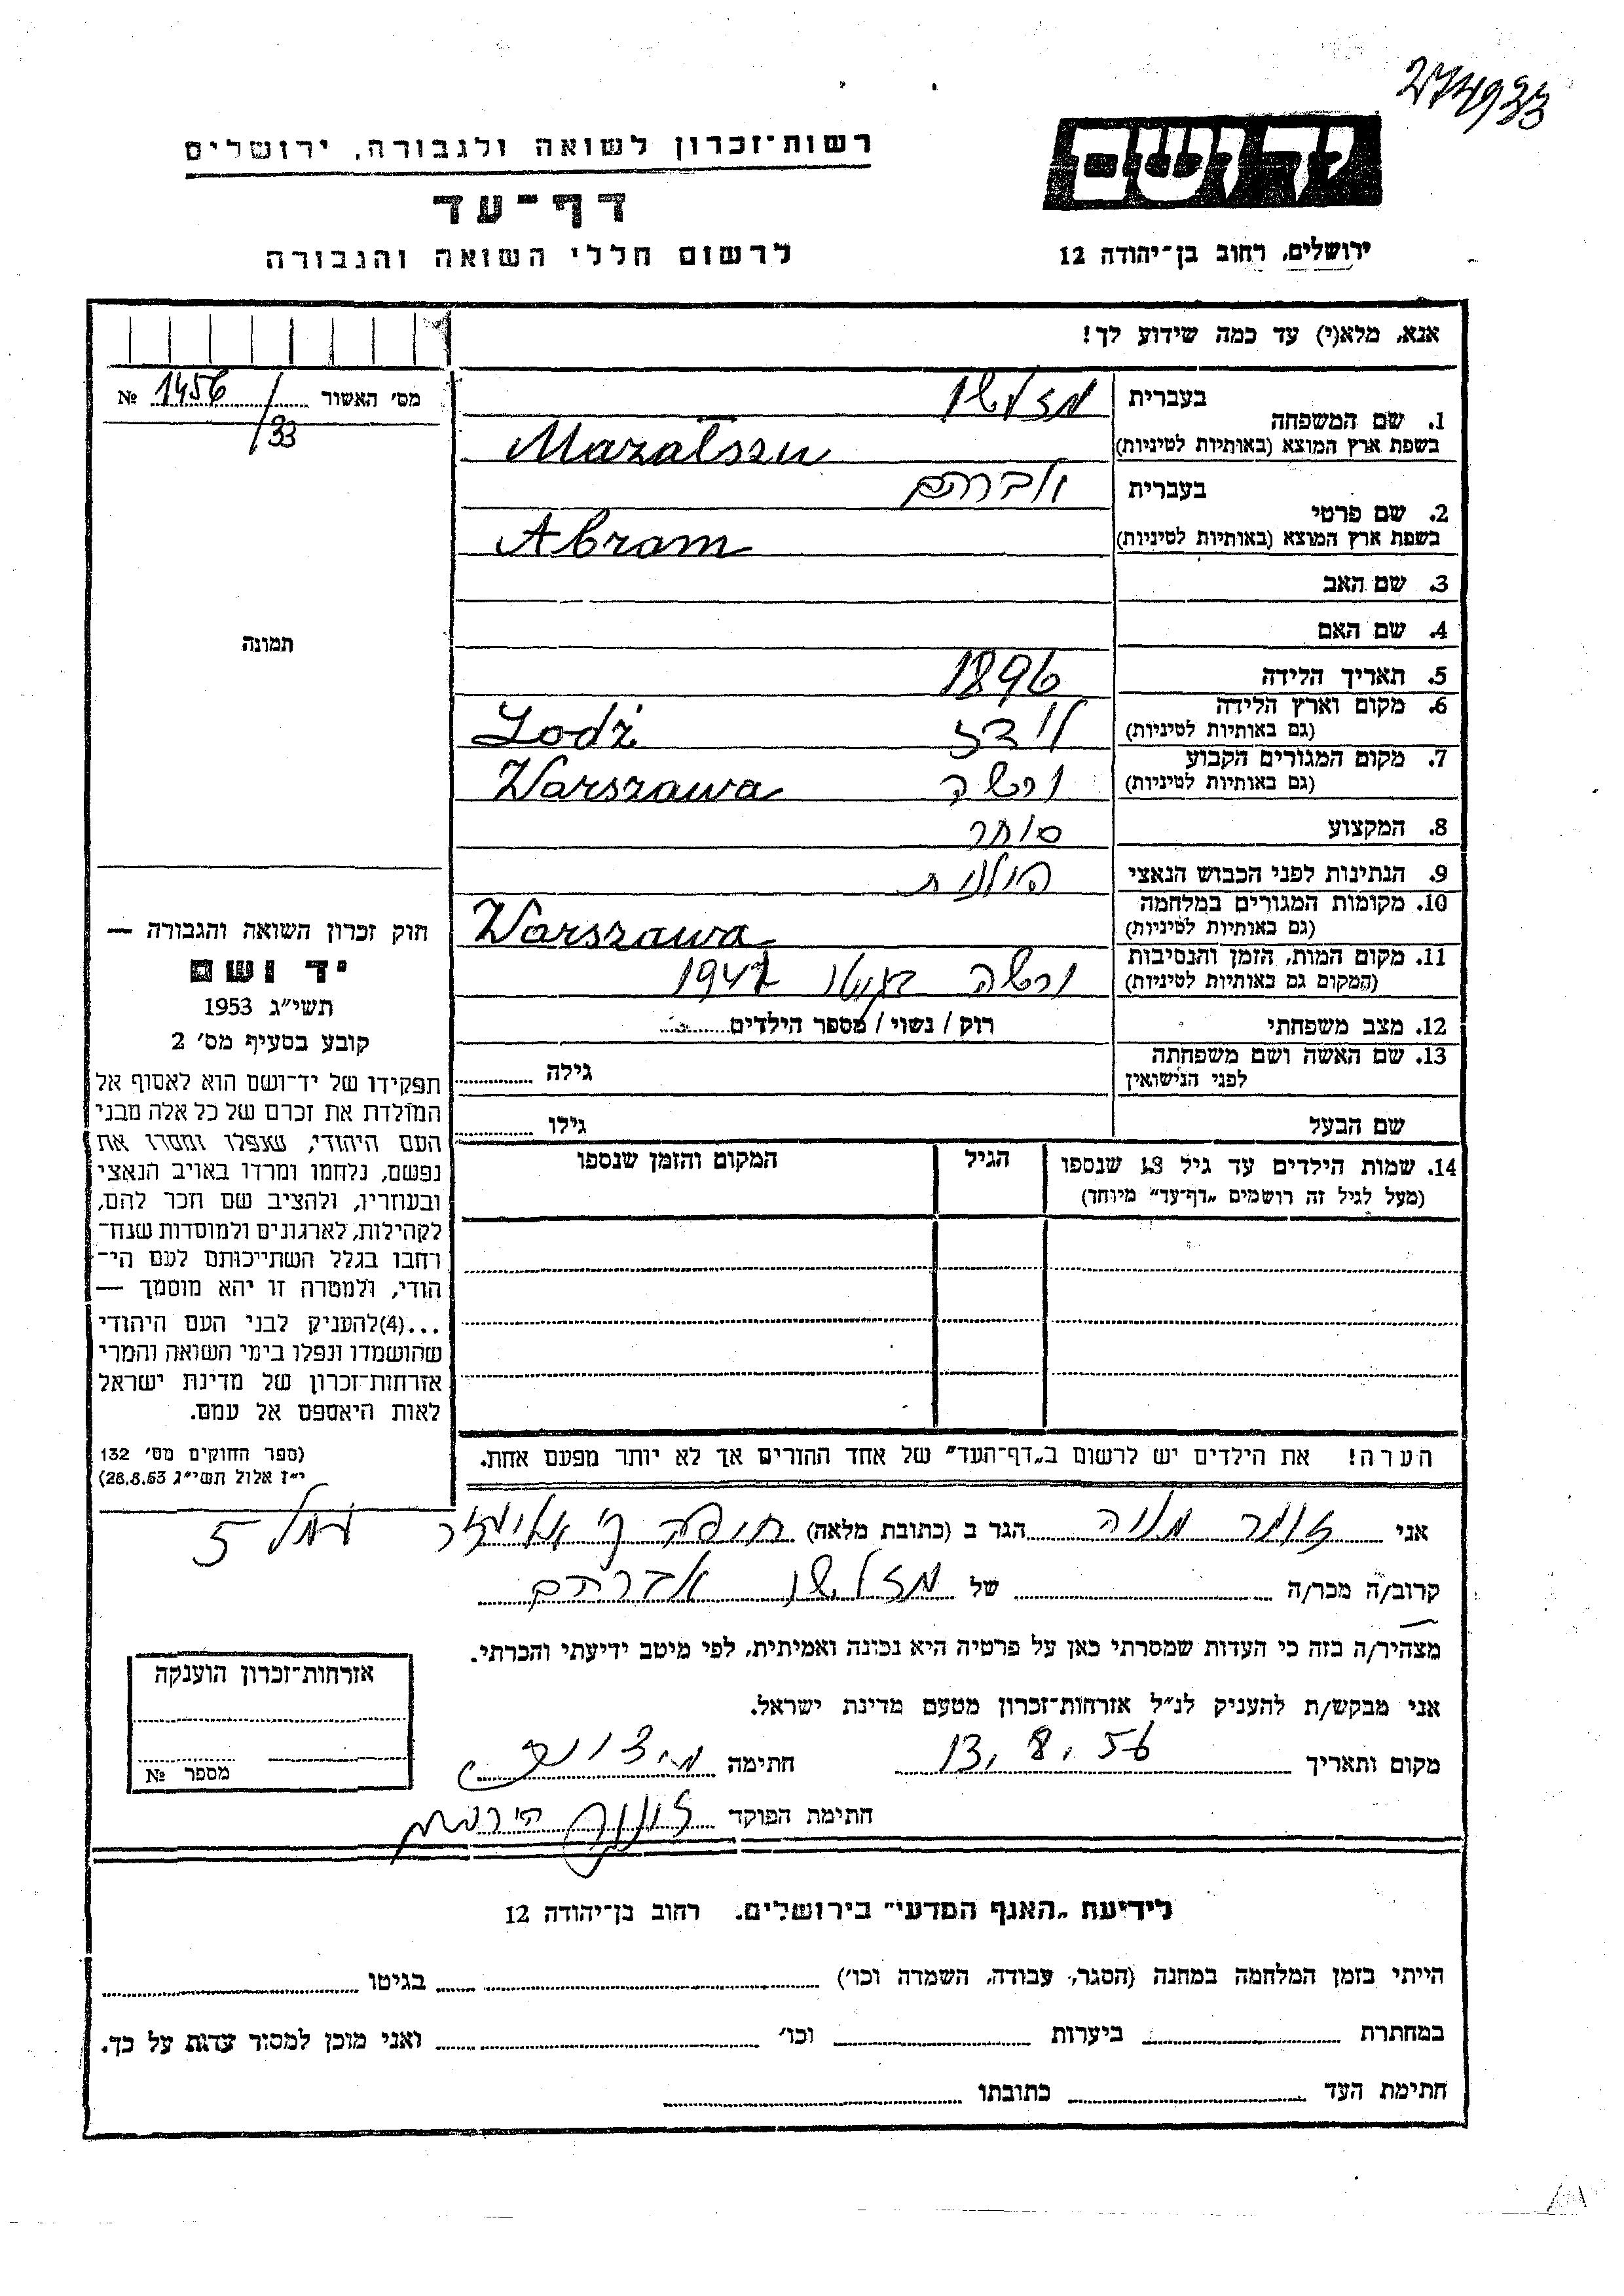 274933
יד ושם
רשות־זכרון לשואה ולגבורה, ירושלים
דף־עד
לרשום חללי השואה והגבורה
ירושלים, רחוב בן־יהודה 12
אנא, מלא(י) עד כמה שידוע לך!
מס׳ האשור 1456 №
/33
1. שם המשפחה
בעברית מזלשו
בשפת ארץ המוצא (באותיות לטיניות) Mazałszu
2. שם פרטי
בעברית אברהם
בשפת ארץ המוצא (באותיות לטיניות) Abram
3. שם האב
4. שם האם
5. תאריך הלידה 1896
6. מקום וארץ הלידה
(גם באותיות לטיניות) לודז Lodź
7. מקום המגורים הקבוע
(גם באותיות לטיניות) ורשה Warszawa
8. המקצוע סוחר
9. הנתינות לפני הכבוש הנאצי פולנית
10. מקומות המגורים במלחמה
(גם באותיות לטיניות) Warszawa
11. מקום המות, הזמן והנסיבות
(המקום גם באותיות לטיניות) ורשה בגיטו
12. מצב משפחתי רוק / נשוי / מספר הילדים
13. שם האשה ושם משפחתה
לפני הנישואין גילה
שם הבעל גילו
14. שמות הילדים עד גיל 18 שנספו
(מעל לגיל זה רושמים „דף־עד” מיוחד)
הגיל
המקום והזמן שנספו
תמונה
חוק זכרון השואה והגבורה —
יד ושם
תשי״ג 1953
קובע בסעיף מס׳ 2
תפקידו של יד־ושם הוא לאסוף אל
המולדת את זכרם של כל אלה מבני
העם היהודי, שנפלו ומסרו את
נפשם, נלחמו ומרדו באויב הנאצי
ובעוזריו, ולהציב שם וזכר להם,
לקהילות, לארגונים ולמוסדות שנח־
רחבו בגלל השתייכותם לעם הי־
הודי, ולמטרה זו יהא מוסמך —
...(4) להעניק לבני העם היהודי
שהושמדו ונפלו בימי השואה והמרי
אזרחות־זכרון של מדינת ישראל
לאות היאספם אל עמם.
(ספר החוקים מס׳ 132
י״ז אלול תשי״ג 28.8.53)
הערה! את הילדים יש לרשום ב„דף־העד” של אחד ההורים אך לא יותר מפעם אחת.
אני זומר מניה הגר ב (כתובת מלאה) חיפה 5
קרוב/ה מכר/ה של מזלשו אברהם
מצהיר/ה בזה כי העדות שמסרתי כאן על פרטיה היא נכונה ואמיתית, לפי מיטב ידיעתי והכרתי.
אני מבקש/ת להעניק לנ״ל אזרחות־זכרון מטעם מדינת ישראל.
מקום ותאריך 13.8.56 חתימה
חתימת הפוקד
אזרחות־זכרון הוענקה
מספר №
לידיעת „האגף המדעי” בירושלים, רחוב בן־יהודה 12
הייתי בזמן המלחמה במחנה (הסגר, עבודה, השמדה וכו׳) בגיטו
במחתרת ביערות וכו׳ ואני מוכן למסור עדות על כך.
חתימת העד כתובתו